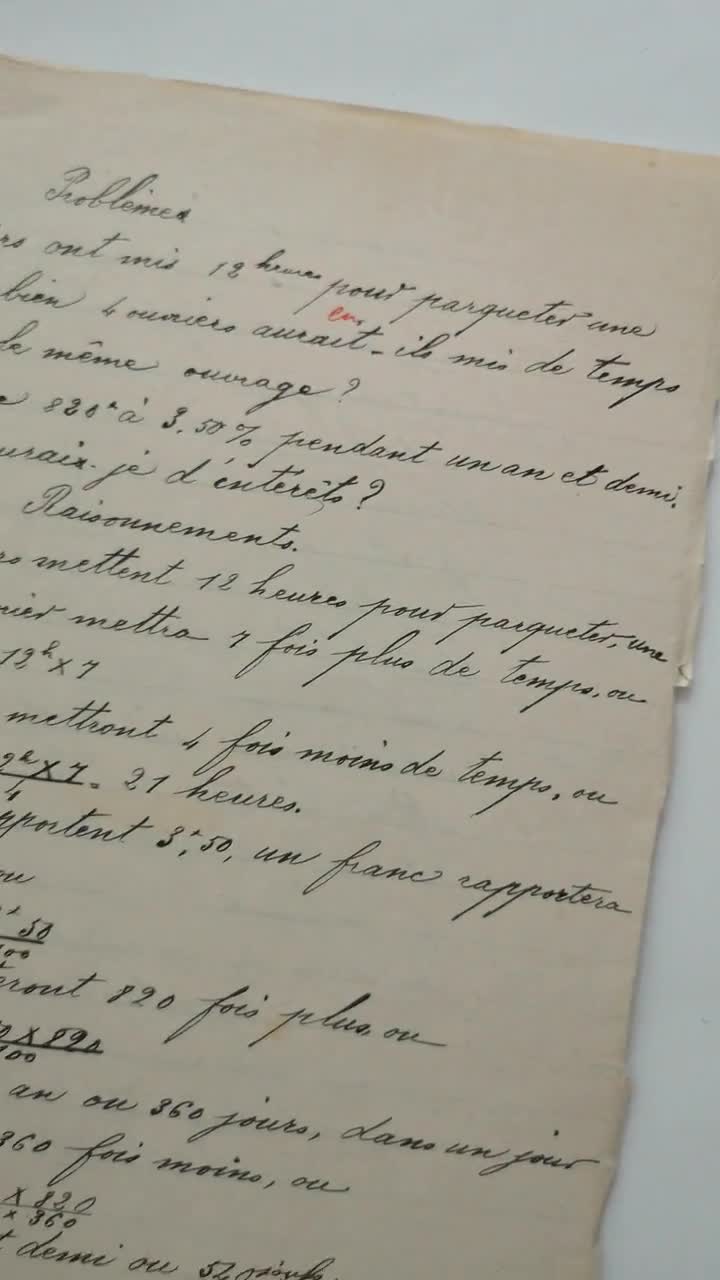 Problèmes
rs ont mis 12 heures pour parqueter une
bien 4 ouvriers aurait-ils mis de temps
en
le même ouvrage ?
820f à 3,50 % pendant un an et demi.
urais-je d'intérêts ?
Raisonnements.
rs mettent 12 heures pour parqueter, une
rier mettra 7 fois plus de temps, ou
12h x 7
mettront 4 fois moins de temps, ou
2h x 7 / 4 = 21 heures.
pportent 3f,50, un franc rapportera
ou
f 50 / 100
eront 820 fois plus, ou
0 x 820 / 100
an ou 360 jours, dans un jour
360 fois moins, ou
x 820 / x 360
t demi ou